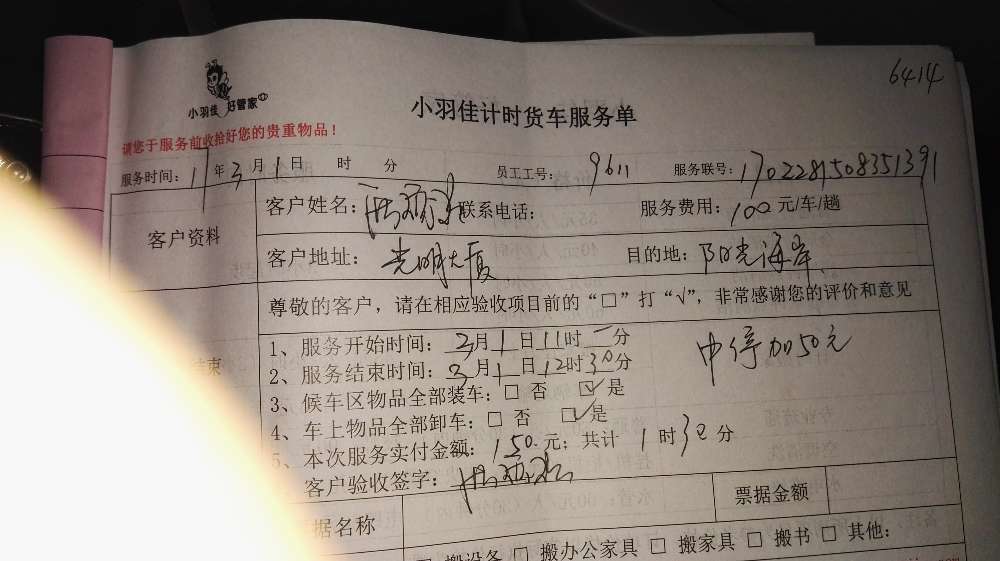 6414
小羽佳 好管家
小羽佳计时货车服务单
请您于服务前收拾好您的贵重物品！
服务时间：17年3月1日 时 分 员工工号：9611 服务联号：1702281508351391
客户资料
客户姓名： 联系电话： 服务费用：100元/车/趟
客户地址：光明大厦 目的地：阳光海岸
尊敬的客户，请在相应验收项目前的“□”打“√”，非常感谢您的评价和意见
1、服务开始时间：3月1日11时 分
中停加50元
2、服务结束时间：3月1日12时30分
3、候车区物品全部装车：□ 否 ☑ 是
4、车上物品全部卸车：□ 否 ☑ 是
5、本次服务实付金额：150元；共计 1时30分
客户验收签字：
据名称 票据金额
□ 搬设备 □ 搬办公家具 □ 搬家具 □ 搬书 □ 其他：